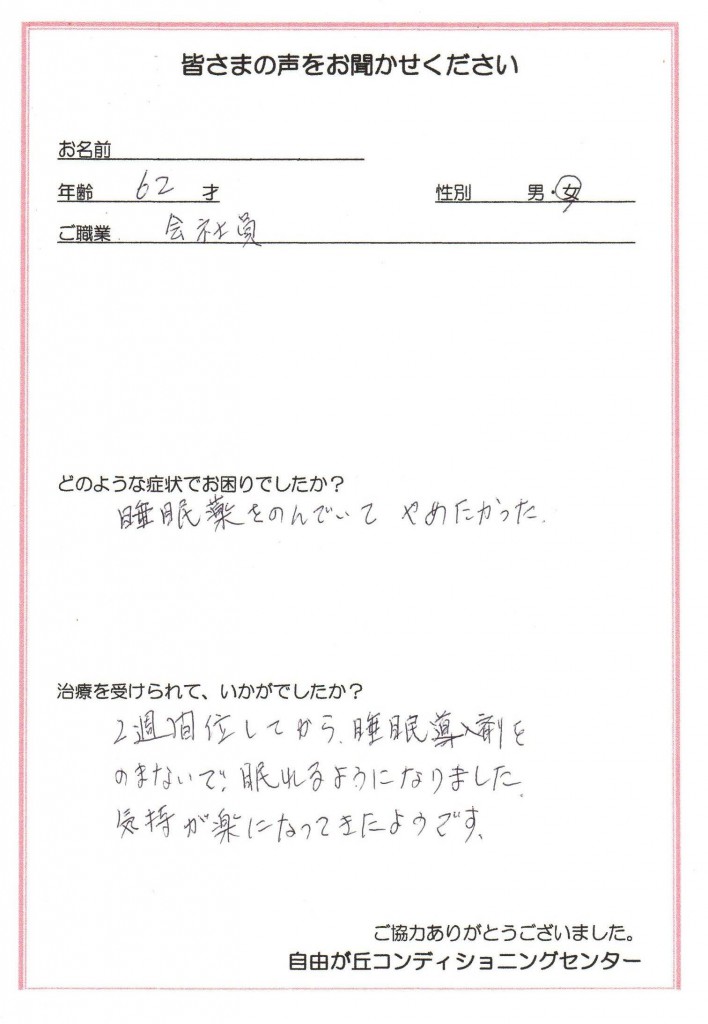 皆さまの声をお聞かせください
お名前
年齢 62 才 性別 男・女
ご職業 会社員
どのような症状でお困りでしたか？
睡眠薬をのんでいて やめたかった.
治療を受けられて、いかがでしたか？
2週間位してから、睡眠導入剤を
のまないで、眠れるようになりました.
気持が楽になってきたようです、
ご協力ありがとうございました。
自由が丘コンディショニングセンター